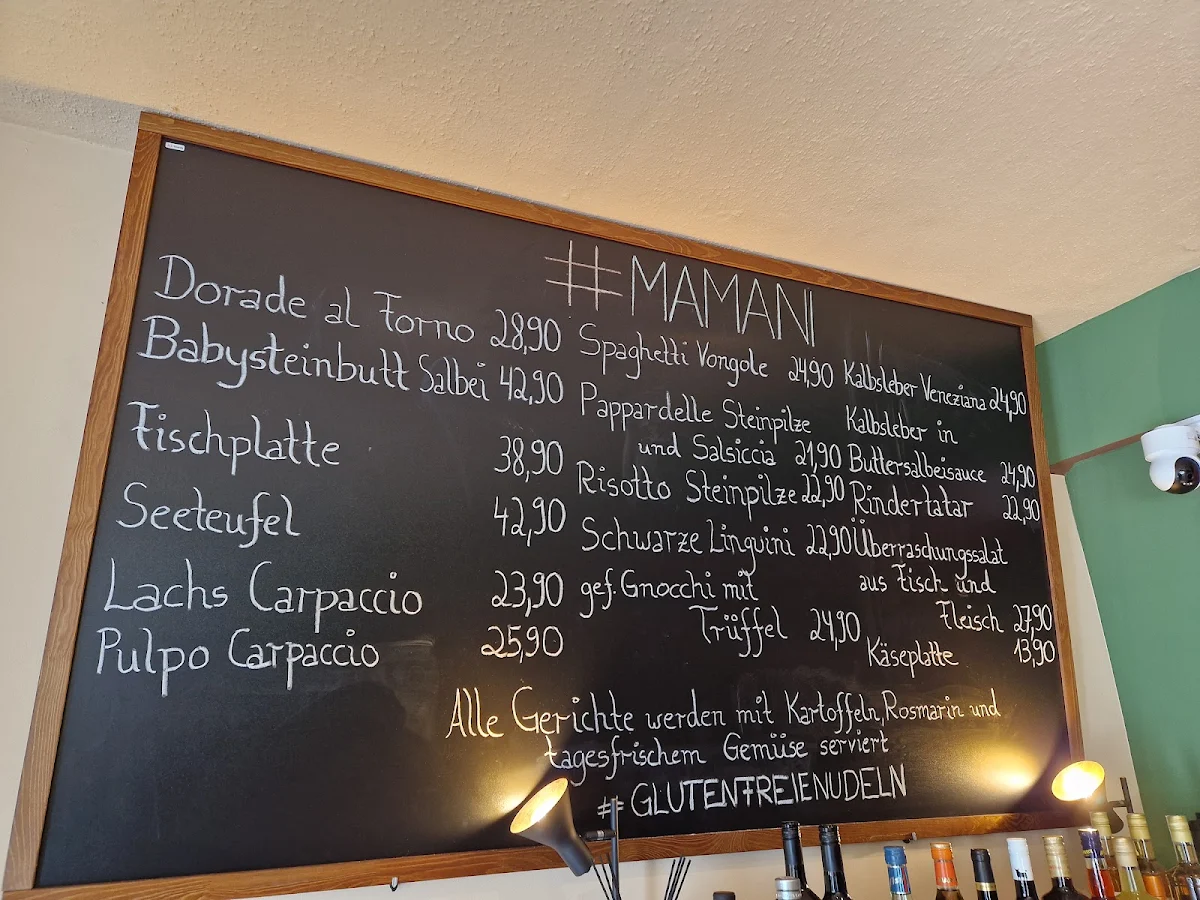 #MAMANI
Dorade al Forno 28,90
Babysteinbutt Salbei 42,90
Fischplatte 38,90
Seeteufel 42,90
Lachs Carpaccio 23,90
Pulpo Carpaccio 25,90
Spaghetti Vongole 24,90
Pappardelle Steinpilze
und Salsiccia 21,90
Risotto Steinpilze 22,90
Schwarze Linguini 22,90
gef. Gnocchi mit
Trüffel 24,90
Kalbsleber Veneziana 24,90
Kalbsleber in
Buttersalbeisauce 24,90
Rindertatar 22,90
Überraschungssalat
aus Fisch und
Fleisch 27,90
Käseplatte 13,90
Alle Gerichte werden mit Kartoffeln, Rosmarin und
tagesfrischem Gemüse serviert
#GLUTENFREIENUDELN